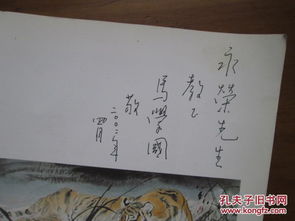 永荣先生
教正
馬學國
敬
二〇〇六年
四月
孔夫子旧书网